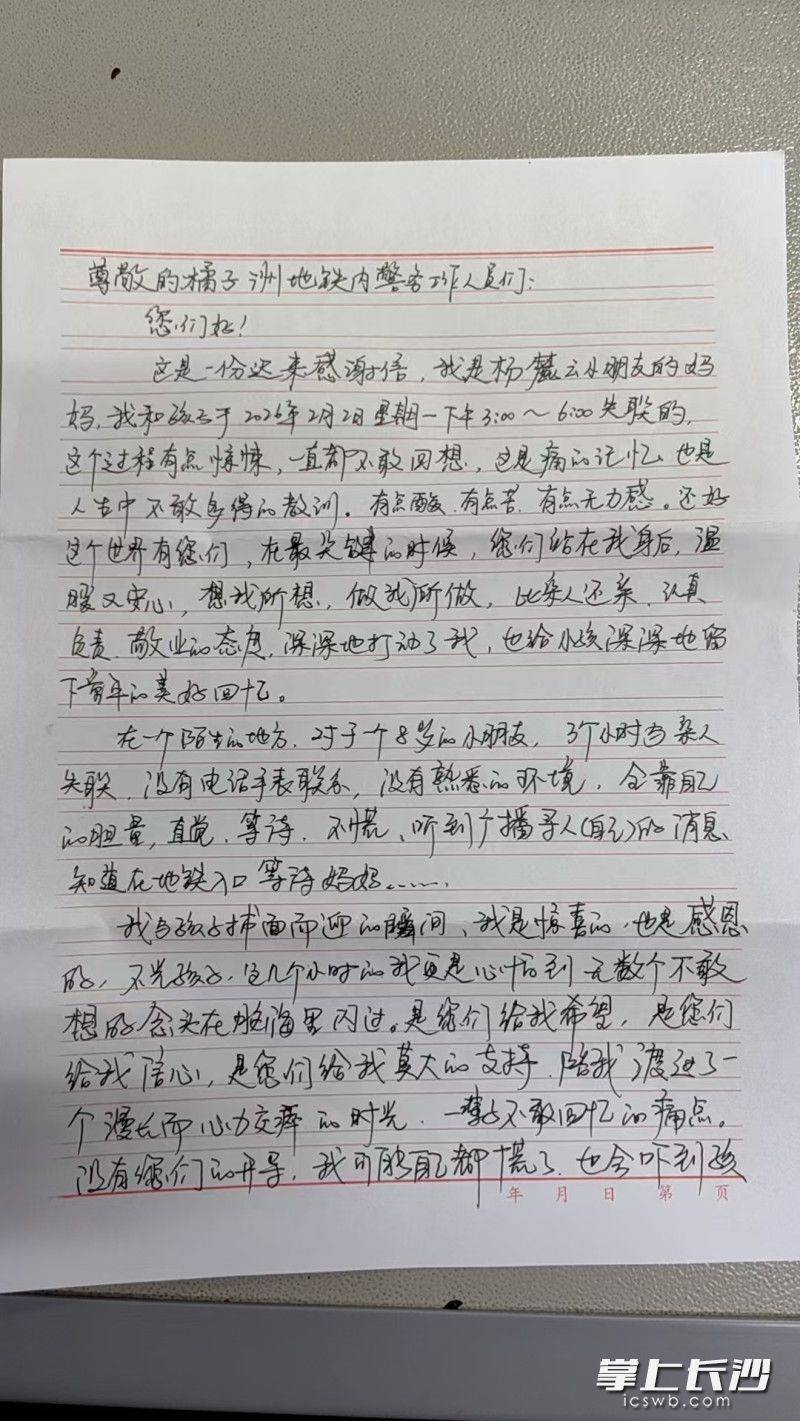 尊敬的橘子洲地铁内警务工作人员们：
您们好！
这是一份迟来感谢信，我是杨麓云小朋友的妈
妈，我和孩子于2026年2月2日星期一下午3:00～6:00失联的，
这个过程有点惊悚，一直都不敢回想，这是痛的记忆，也是
人生中不敢多得的教训。有点酸、有点苦、有点无力感。还好
这个世界有您们，在最关键的时候，您们站在我身后，温
暖又安心，想我所想，做我所做，比亲人还亲、认真
负责、敬业的态度，深深地打动了我，也给小孩深深地留
下童年的美好回忆。
在一个陌生的地方，对于一个8岁的小朋友，3个小时与亲人
失联、没有电话手表联系，没有熟悉的环境，全靠自己
的胆量，直觉、等待、不慌、听到广播寻人（自己）的消息，
知道在地铁入口等待妈妈……
我与孩子扑面而迎的瞬间、我是惊喜的，也是感恩
的，不光孩子，这几个小时的我更是心悸到无数个不敢
想的念头在脑海里闪过。是您们给我希望，是您们
给我信心，是您们给我莫大的支持，陪我渡过了一
个漫长而心力交瘁的时光，一辈子不敢回忆的痛点。
没有您们的开导，我可能自己都慌了，也会吓到孩
年 月 日 第 页
掌上长沙
icswb.com